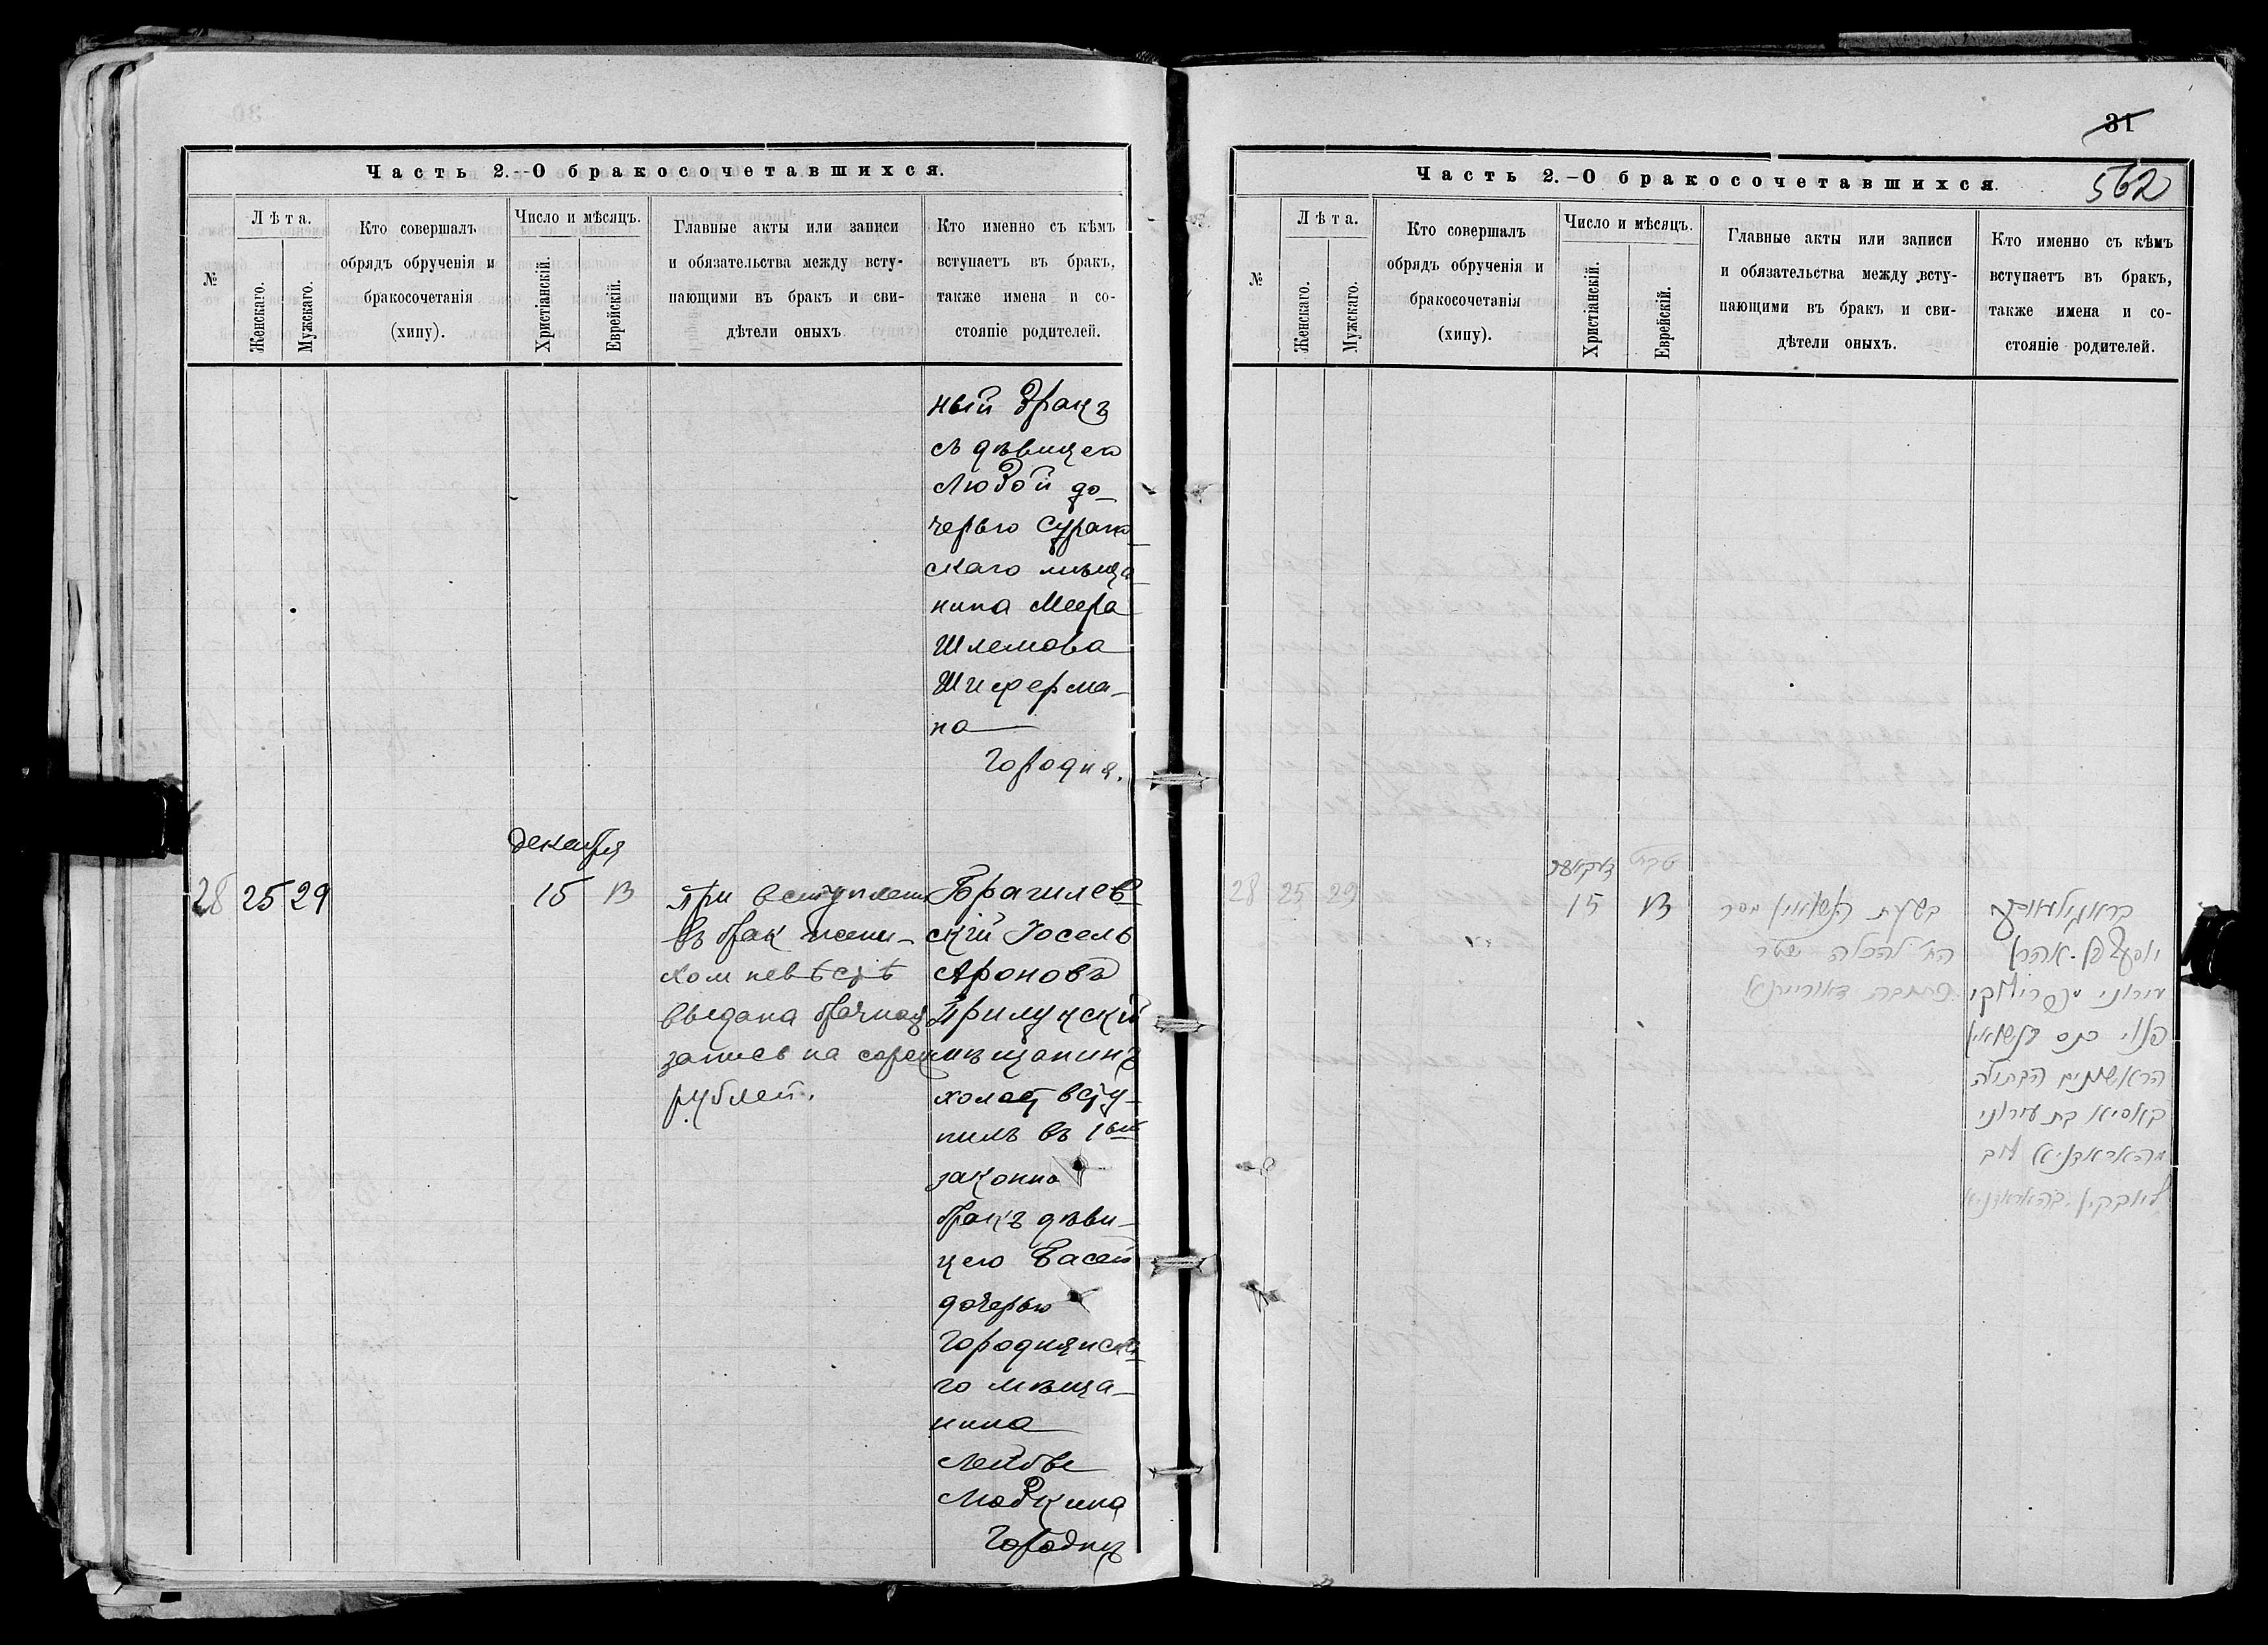 Часть 2.--О бракосочетавшихся.
№
Лѣта.
Женскаго.
Мужскаго.
Кто совершалъ
обрядъ обрученія и
бракосочетанія
(хипу).
Число и мѣсяцъ.
Христіанскій.
Еврейскій.
Главные акты или записи
и обязательства между всту-
пающими въ бракъ и сви-
дѣтели оныхъ.
Кто именно съ кѣмъ
вступаетъ въ бракъ,
также имена и со-
стояніе родителей.
ный бракъ
съ дѣвицею
Любой до-
черью Сураж-
скаго мѣща-
нина Меера
Шлемова
Шифермa-
на
Городня.
декабря
28 25 29
15 13
При вступлении
въ брак жени-
хом невѣстѣ
выдана брачная
запись на сорок
рублей.
Брагилев-
скій Іосель
Ароновъ
Прилукскій
мѣщанинъ
холост всту-
пилъ въ 1ый
законно
бракъ дѣви-
цею Басей
дочерью
Городнянска-
го мѣща-
нина
Лейбы
Любкина
Городня
31
562
Часть 2.-О бракосочетавшихся.
№
Лѣта.
Женскаго.
Мужскаго.
Кто совершалъ
обрядъ обрученія и
бракосочетанія
(хипу).
Число и мѣсяцъ.
Христіанскій.
Еврейскій.
Главные акты или записи
и обязательства между всту-
пающими въ бракъ и сви-
дѣтели оныхъ.
Кто именно съ кѣмъ
вступаетъ въ бракъ,
также имена и со-
стояніе родителей.
28 25 29
טבת
15 13
בשעת הנשואין מסר
הח' להכלה שטר
כתובת דאורייתא
אהרן
עירוני
פנוי כנס לנשואין
הראשונים הבתולה
באסיא בת עירוני